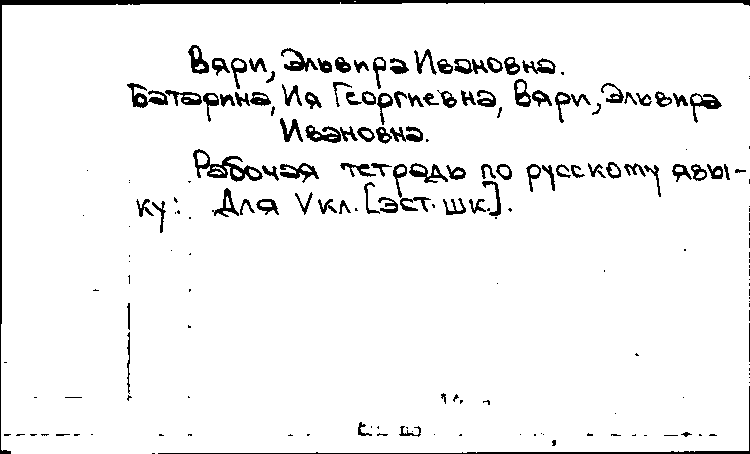 Вяри, Эльвира Ивановна.
Батарина, Ия Георгиевна, Вяри, Эльвира
Ивановна.
Рабочая тетрадь по русскому язы-
ку: Для V кл. [эст. шк.].